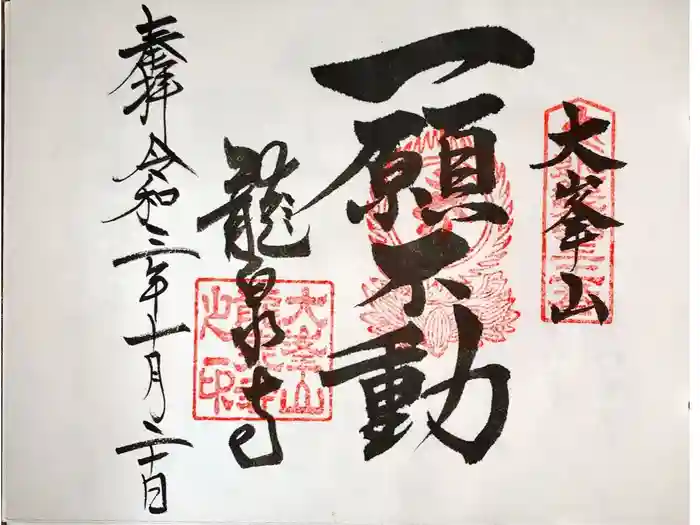 大峯山
一願不動
龍泉寺
大峯山
龍泉寺
之印
奉拝 令和二年十月二十日